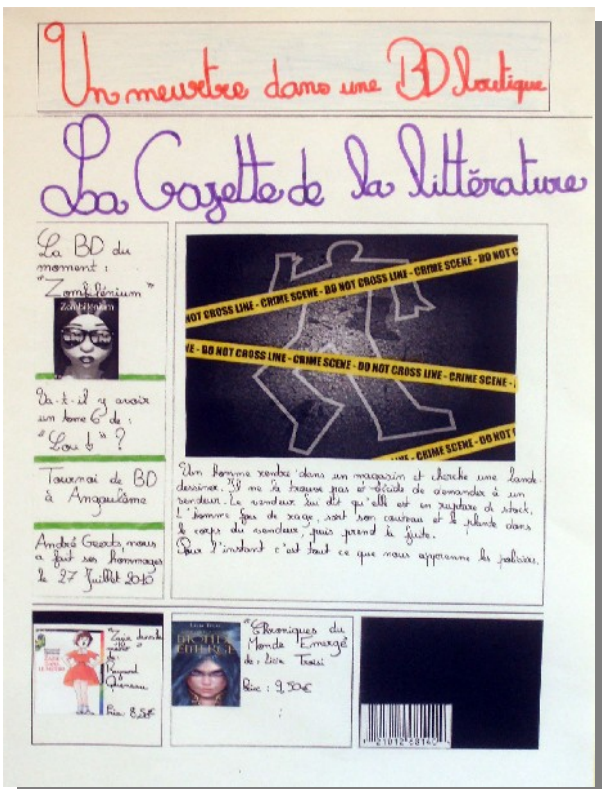 Un meurtre dans une BD boutique
La Gazette de la littérature
La BD du
moment :
"Zombillénium"
Zombillénium
Va-t-il y avoir
un tome 6 de :
"Lou !" ?
Tournoi de BD
à Angoulême
André Geerts nous
a fait ses hommages
le 27 Juillet 2010
NOT CROSS LINE - CRIME SCENE - DO NOT CROSS LINE - CRIME SCENE - DO NOT C
NE - DO NOT CROSS LINE - CRIME SCENE - DO NOT CROSS LINE - CRIME SCENE -
- CRIME SCENE - DO NOT
Un homme rentre dans un magasin et cherche une bande
dessinée. Il ne la trouve pas et décide de demander à un
vendeur. Le vendeur lui dit qu'elle est en rupture de stock.
L'homme fou de rage, sort son couteau et le plante dans
le corps du vendeur, puis prend la fuite.
Pour l'instant c'est tout ce que nous apprenne les policiers.
"Zazie dans le
métro"
de :
Raymond
Queneau
Prix : 8,50€
ZAZIE
DANS
LE MÉTRO
"Chroniques du
Monde Emergé"
de : Licia Troisi
Prix : 9,50€
Licia Troisi
MONDE
EMERGÉ